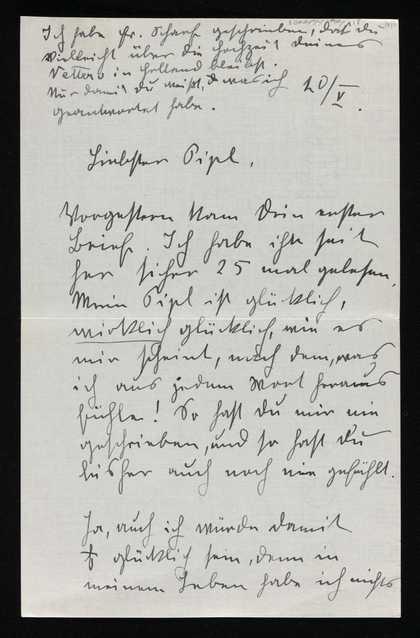 Ich habe Fr. Scharf geschrieben, daß du
vielleicht über die Hochzeit deines
Vetters in Holland bleibst.
Nur damit du weißt, was ich
geantwortet habe.
20/V.
Liebster Pipl,
Vorgestern kam dein erster
Brief. Ich habe ihn seit
her sicher 25 mal gelesen.
Mein Pipl ist glücklich,
wirklich glücklich, wie es
mir scheint, nach dem, was
ich aus jedem Wort heraus
fühle! So hast du mir nie
geschrieben, und so hast du
bisher auch noch nie gefühlt.
Ja, auch ich würde damit
glücklich sein, denn in
meinem Leben habe ich nichts